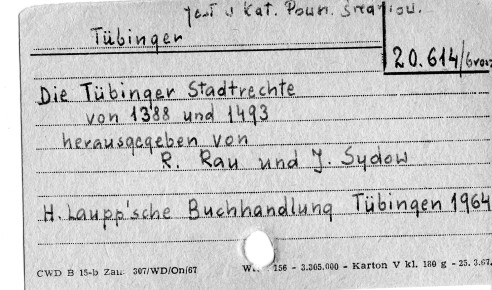 Jest w Kat. Poum.
Tübinger
20.614/
Die Tübinger Stadtrechte
von 1388 und 1493
herausgegeben von
R. Rau und J. Sydow
H. Laupp'sche Buchhandlung Tübingen 1964
CWD B 15-b Zam. 307/WD/On/67 156 - 3.305.000 - Karton V kl. 180 g - 25.3.67.